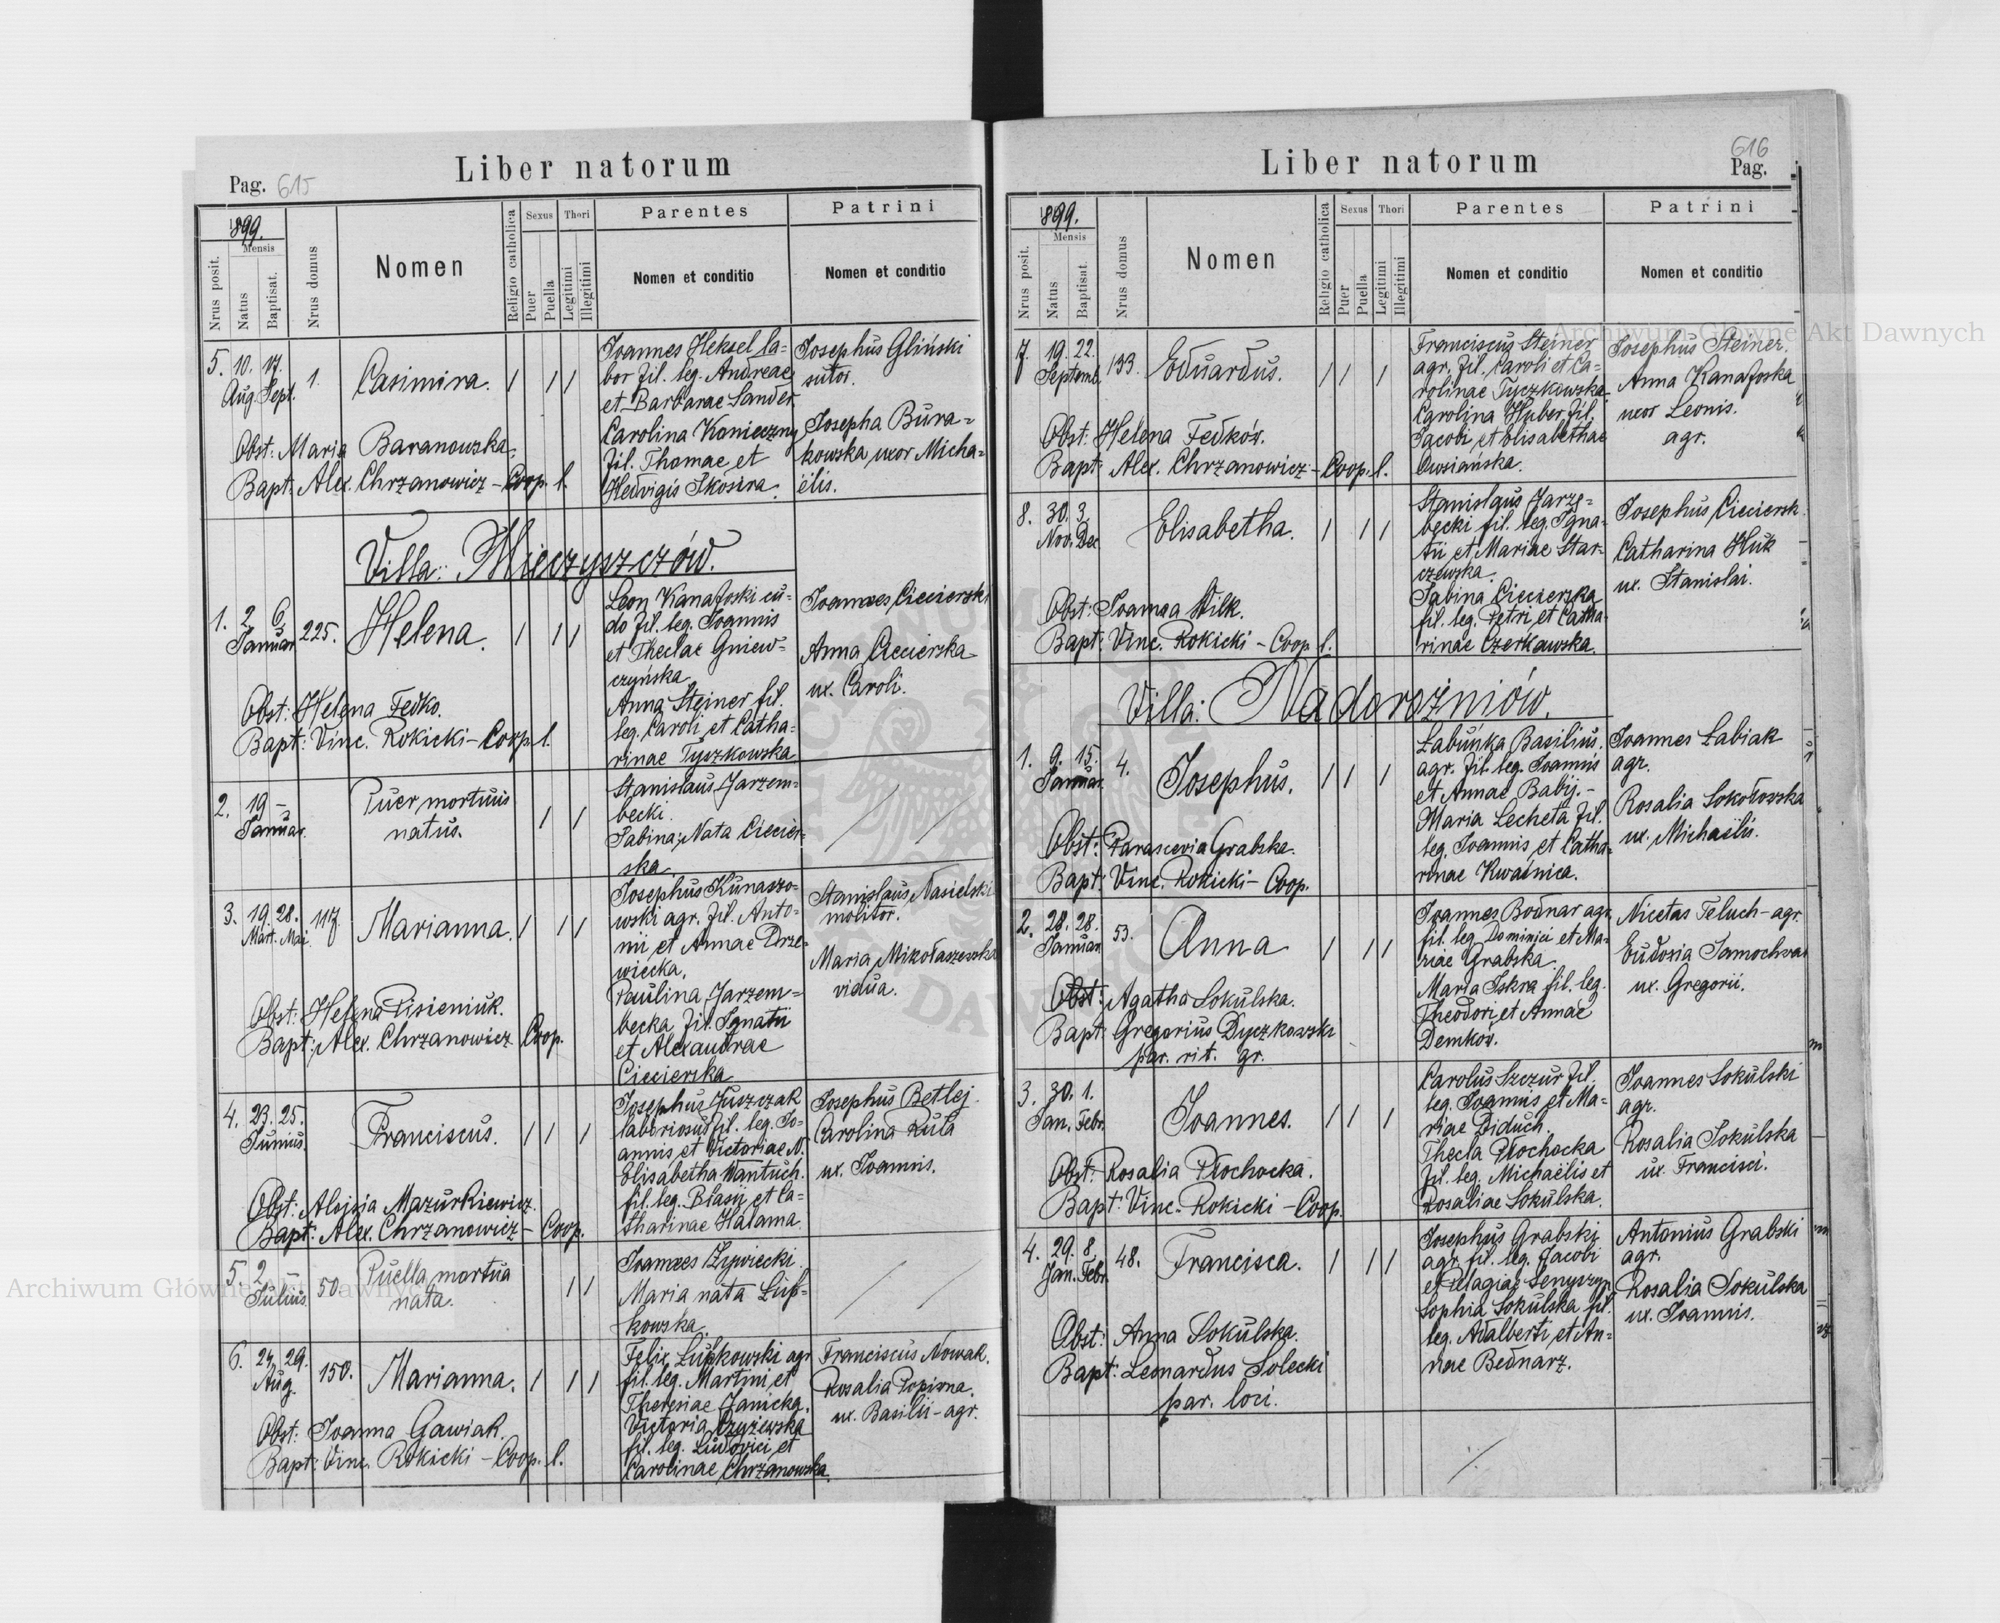 Liber natorum
Pag. 615
1899.
Nrus posit.
Mensis
Natus
Baptisat.
Nrus domus
Nomen
Religio catholica
Sexus
Puer
Puella
Thori
Legitimi
Illegitimi
Parentes
Nomen et conditio
Patrini
Nomen et conditio
5. 10. 17. 1. Casimira.
Aug. Sept.
Obst: Maria Baranowska.
Bapt: Alex. Chrzanowicz - Coop. l.
Joannes Heksel la-
bor fil. leg. Andreae
et Barbarae Sander
Carolina Konieczny
fil. Thomae et
Hedvigis Skosira.
Josephus Gliński
sutor.
Josepha Bura-
kowska uxor Micha-
ëlis.
Villa: Mieczyszczów.
1. 2. 6. 225. Helena.
Januar.
Obst: Helena Fedko.
Bapt: Vinc. Rokicki - Coop. l.
Leon Kanafoski cu-
do fil. leg. Joannis
et Theclae Gniew-
czyńska
Anna Steiner fil.
leg. Caroli et Catha-
rinae Tyszkowska
Joannes Ciecierski
Anna Ciecierska
ux. Caroli.
2. 19 - Puer mortuus
Januar. natus.
Stanislaus Jarzem-
becki.
Sabina, Nata Ciecier-
ska
3. 19. 28. 117. Marianna.
Mart. Mai.
Obst: Helena Pisieniuk.
Bapt: Alex. Chrzanowicz Coop.
Josephus Kunaszo-
wski agr. fil. Anto-
nii et Annae Drze-
wiecka,
Paulina Jarzem-
becka fil. Ignatii
et Alexandrae
Ciecierska
Stanislaus Nasielski
molitor.
Maria Mikołaszewska
vidua.
4. 23. 25. Franciscus.
Junius.
Obst: Alojsia Mazurkiewicz.
Bapt: Alex. Chrzanowicz - Coop.
Josephus Juszczak
laboriosus fil. leg. Jo-
annis et Victoriae N.
Elisabetha Wantuch.
fil. leg. Blasii et Ca-
tharinae Halama
Josephus Betlej.
Carolina Ruta
ux. Joannis.
5. 2. - 50. Puella mortua
Julius. nata.
Joannes Żywiecki
Maria nata Łup-
kowska.
6. 24. 29. 150. Marianna.
Aug.
Obst: Joanna Gawiak.
Bapt: Vinc. Rokicki - Coop. l.
Felix Łupkowski agr
fil. leg. Martini et
Theresiae Janicka.
Victoria Czyżewska
fil. leg. Ludovici et
Carolinae Chrzanowska.
Franciscus Nowak.
Rosalia Popiwna.
ux. Basilii - agr.
Liber natorum
616
Pag.
1899.
Nrus posit.
Mensis
Natus
Baptisat.
Nrus domus
Nomen
Religio catholica
Sexus
Puer
Puella
Thori
Legitimi
Illegitimi
Parentes
Nomen et conditio
Patrini
Nomen et conditio
7. 19. 22. 133. Eduardus.
Septemb.
Obst: Helena Fedków.
Bapt: Alex. Chrzanowicz - Coop. l.
Franciscus Steiner
agr. fil. Caroli et Ca-
rolinae Tyczkowska
Carolina Huber fil.
Jacobi et Elisabethae
Owsiańska.
Josephus Steiner.
Anna Kanafoska
uxor Leonis.
agr.
8. 30. 3. Elisabetha.
Nov. Dec
Obst: Joanna Wilk.
Bapt: Vinc. Rokicki - Coop. l.
Stanislaus Jarze-
becki fil. leg. Igna-
tii et Mariae Star-
czewska.
Sabina Ciecierska
fil. leg. Petri et Catha-
rinae Czerkawska.
Josephus Cieciersk
Catharina Huk
ux. Stanislai.
Villa: Nadorożniów.
1. 9. 15. 4. Josephus.
Januar.
Obst: Parascevia Grabska.
Bapt: Vinc. Rokicki - Coop.
Łabuńka Basilius.
agr. fil. leg. Joannis
et Annae Babij. -
Maria Lecheta fil.
leg. Joannis et Catha-
rinae Kwaśnica.
Joannes Łabiak
agr.
Rosalia Sokołowska
ux. Michaëlis.
2. 28. 28. 53. Anna
Januar.
Obst: Agatha Sokulska.
Bapt: Gregorius Dyczkowski
par. rit. gr.
Joannes Bodnar agr.
fil. leg. Dominici et Ma-
riae Grabska
Maria Iskra fil. leg.
Theodori et Annae
Demków.
Nicetas Feluch - agr.
Eudoxia Samochwał
ux. Gregorii.
3. 30. 1. Joannes.
Jan. Febr.
Obst: Rosalia Płochocka.
Bapt: Vinc. Rokicki - Coop.
Carolus Szczur fil.
leg. Joannis et Ma-
riae Diduch.
Thecla Płochocka
fil. leg. Michaëlis et
Rosaliae Sokulska.
Joannes Sokulski
agr.
Rosalia Sokulska
ux. Francisci.
4. 29. 8. 48. Francisca.
Jan. Febr.
Obst: Anna Sokulska.
Bapt: Leonardus Solecki
par. loci.
Josephus Grabski
agr. fil. leg. Jacobi
et Pelagiae Senyszyn
Sophia Sokulska fil.
leg. Adalberti et An-
nae Bednarz.
Antonius Grabski
agr.
Rosalia Sokulska
ux. Joannis.
Archiwum Główne Akt Dawnych
Archiwum Główne Akt Dawnych